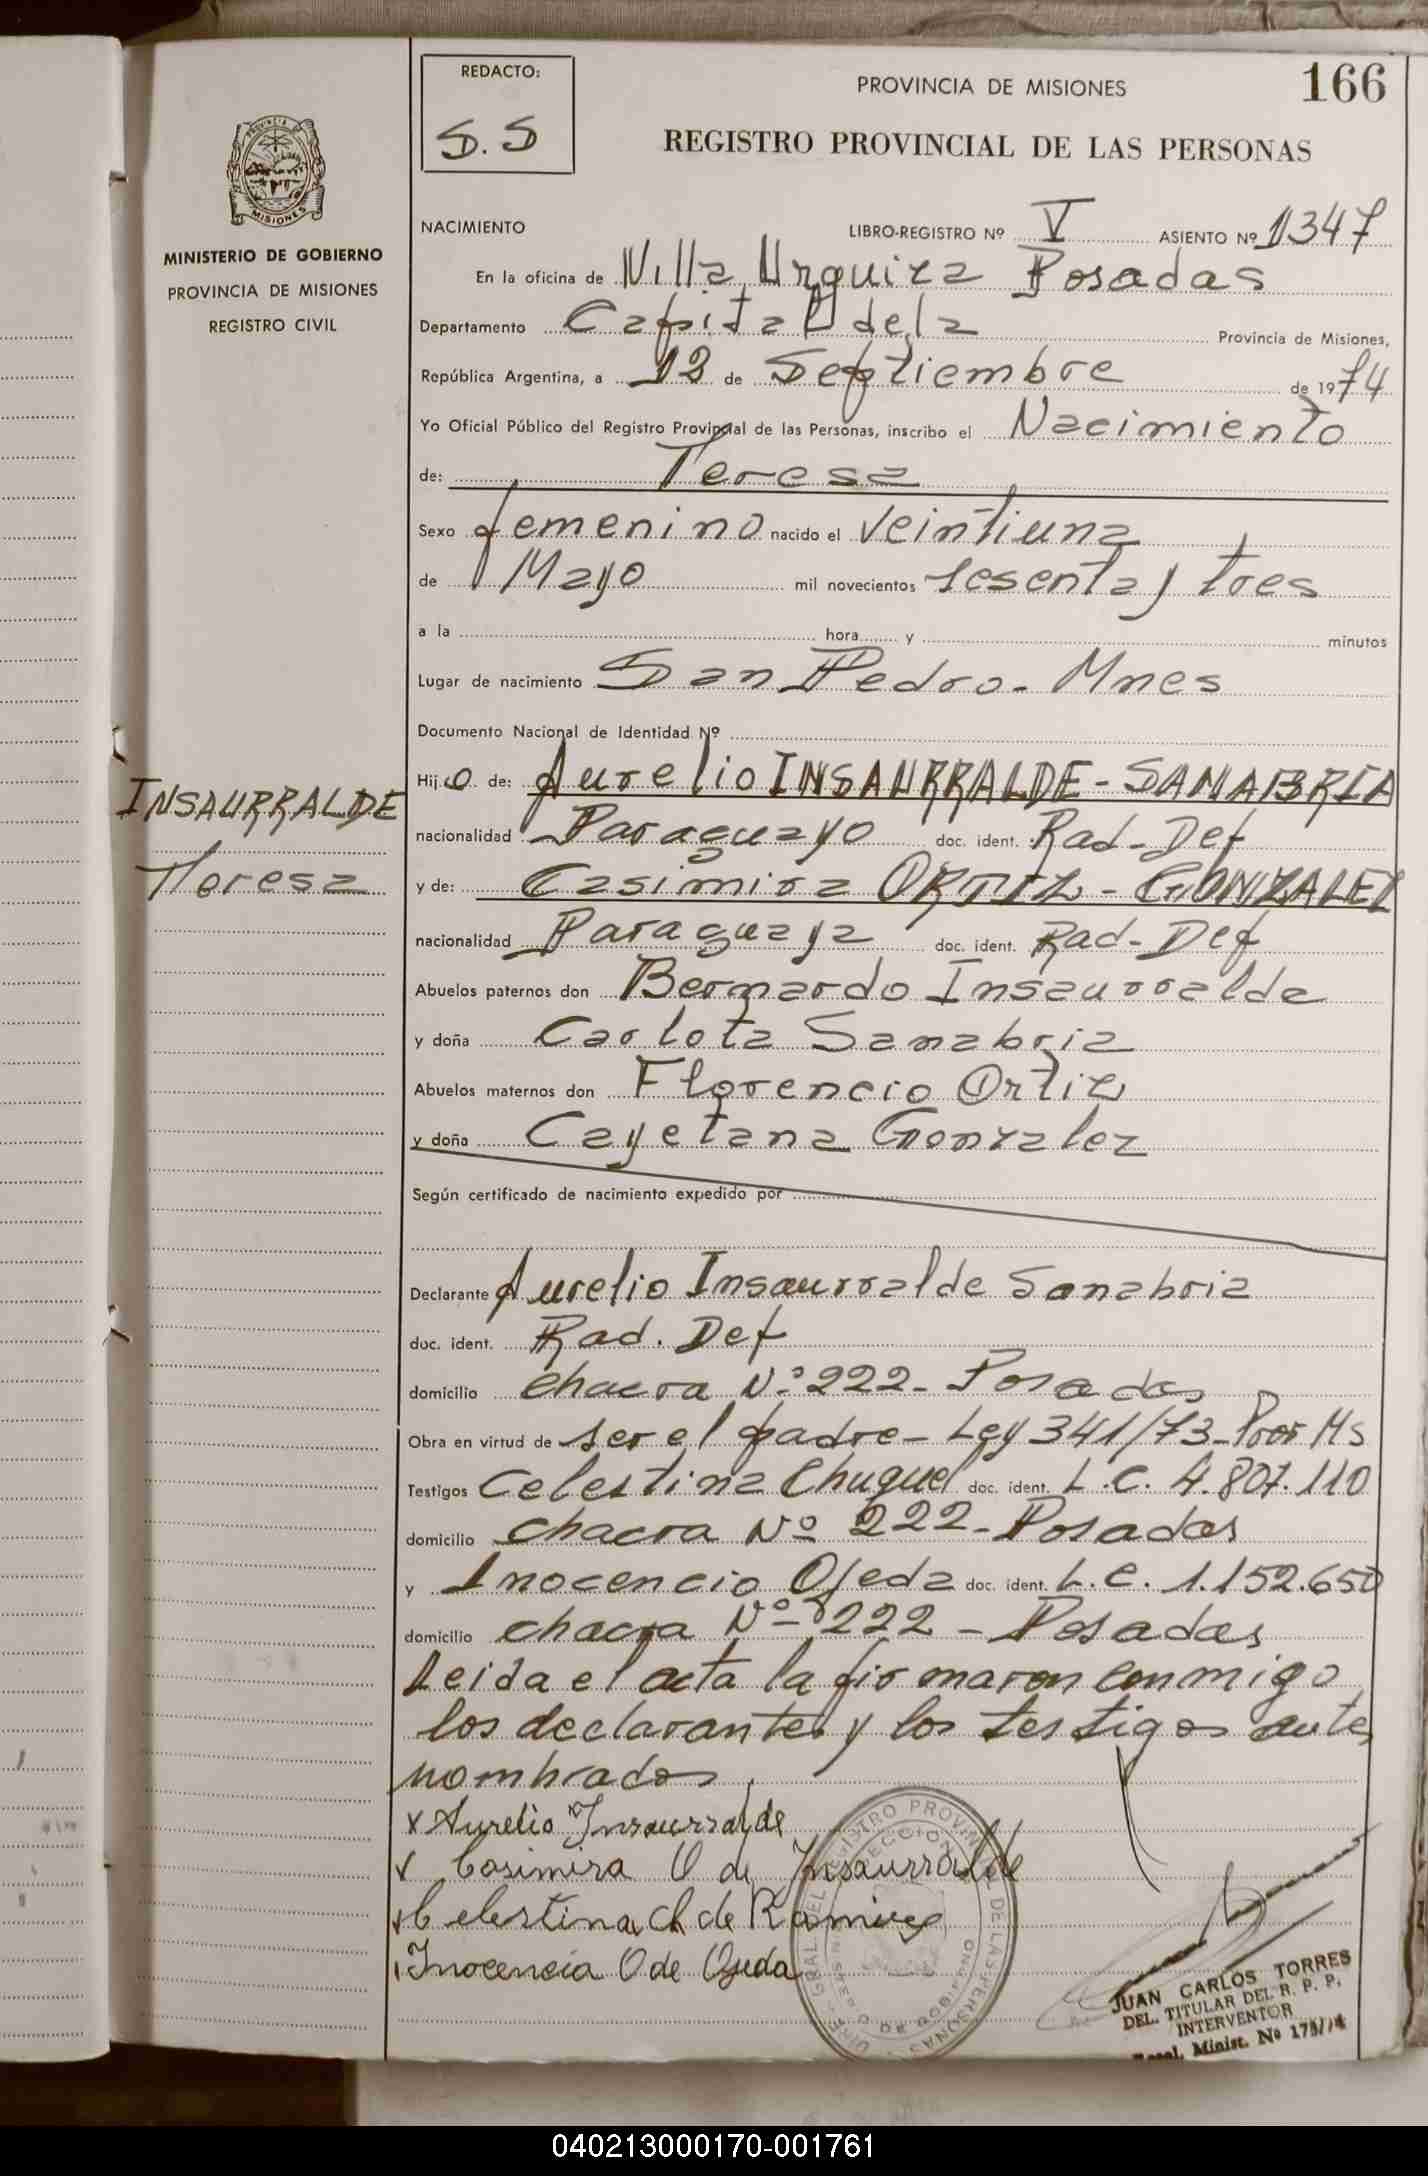 REDACTO:
S. S
PROVINCIA DE MISIONES
166
REGISTRO PROVINCIAL DE LAS PERSONAS
PROVINCIA
MISIONES
MINISTERIO DE GOBIERNO
PROVINCIA DE MISIONES
REGISTRO CIVIL
NACIMIENTO LIBRO-REGISTRO Nº V ASIENTO Nº 1347
En la oficina de Villa Urquiza Posadas
Departamento Capital de la Provincia de Misiones,
República Argentina, a 12 de Septiembre de 1974
Yo Oficial Público del Registro Provincial de las Personas, inscribo el Nacimiento
de: Teresa
Sexo femenino nacido el veintiuna
de Mayo mil novecientos sesenta y tres
a la hora y minutos
Lugar de nacimiento San Pedro - Mnes
Documento Nacional de Identidad Nº
Hijo de: Aurelio INSAURRALDE - SANABRIA
nacionalidad Paraguayo doc. ident. Rad - Def
y de: Casimira ORTIZ - GONZALEZ
nacionalidad Paraguaya doc. ident. Rad - Def
Abuelos paternos don Bernardo Insaurralde
y doña Carlota Sanabria
Abuelos maternos don Florencio Ortiz
y doña Cayetana Gonzalez
Según certificado de nacimiento expedido por
Declarante Aurelio Insaurralde Sanabria
doc. ident. Rad. Def
domicilio chacra Nº 222 - Posadas
Obra en virtud de ser el padre - Ley 341/73 - Ms
Testigos Celestina Chuquel doc. ident. L.C. 4.807.110
domicilio chacra Nº 222 - Posadas
y Inocencio Ojeda doc. ident. L.C. 1.152.650
domicilio chacra Nº 222 - Posadas
Leida el acta la firmaron conmigo
los declarantes y los testigos antes
nombrados
INSAURRALDE
Teresa
x Aurelio Insaurralde
x Casimira O de Insaurralde
x Celestina Ch de Ramirez
Inocencia O de Ojeda
JUAN CARLOS TORRES
DEL. TITULAR DEL R. P. P.
INTERVENTOR
Minist. Nº
040213000170-001761